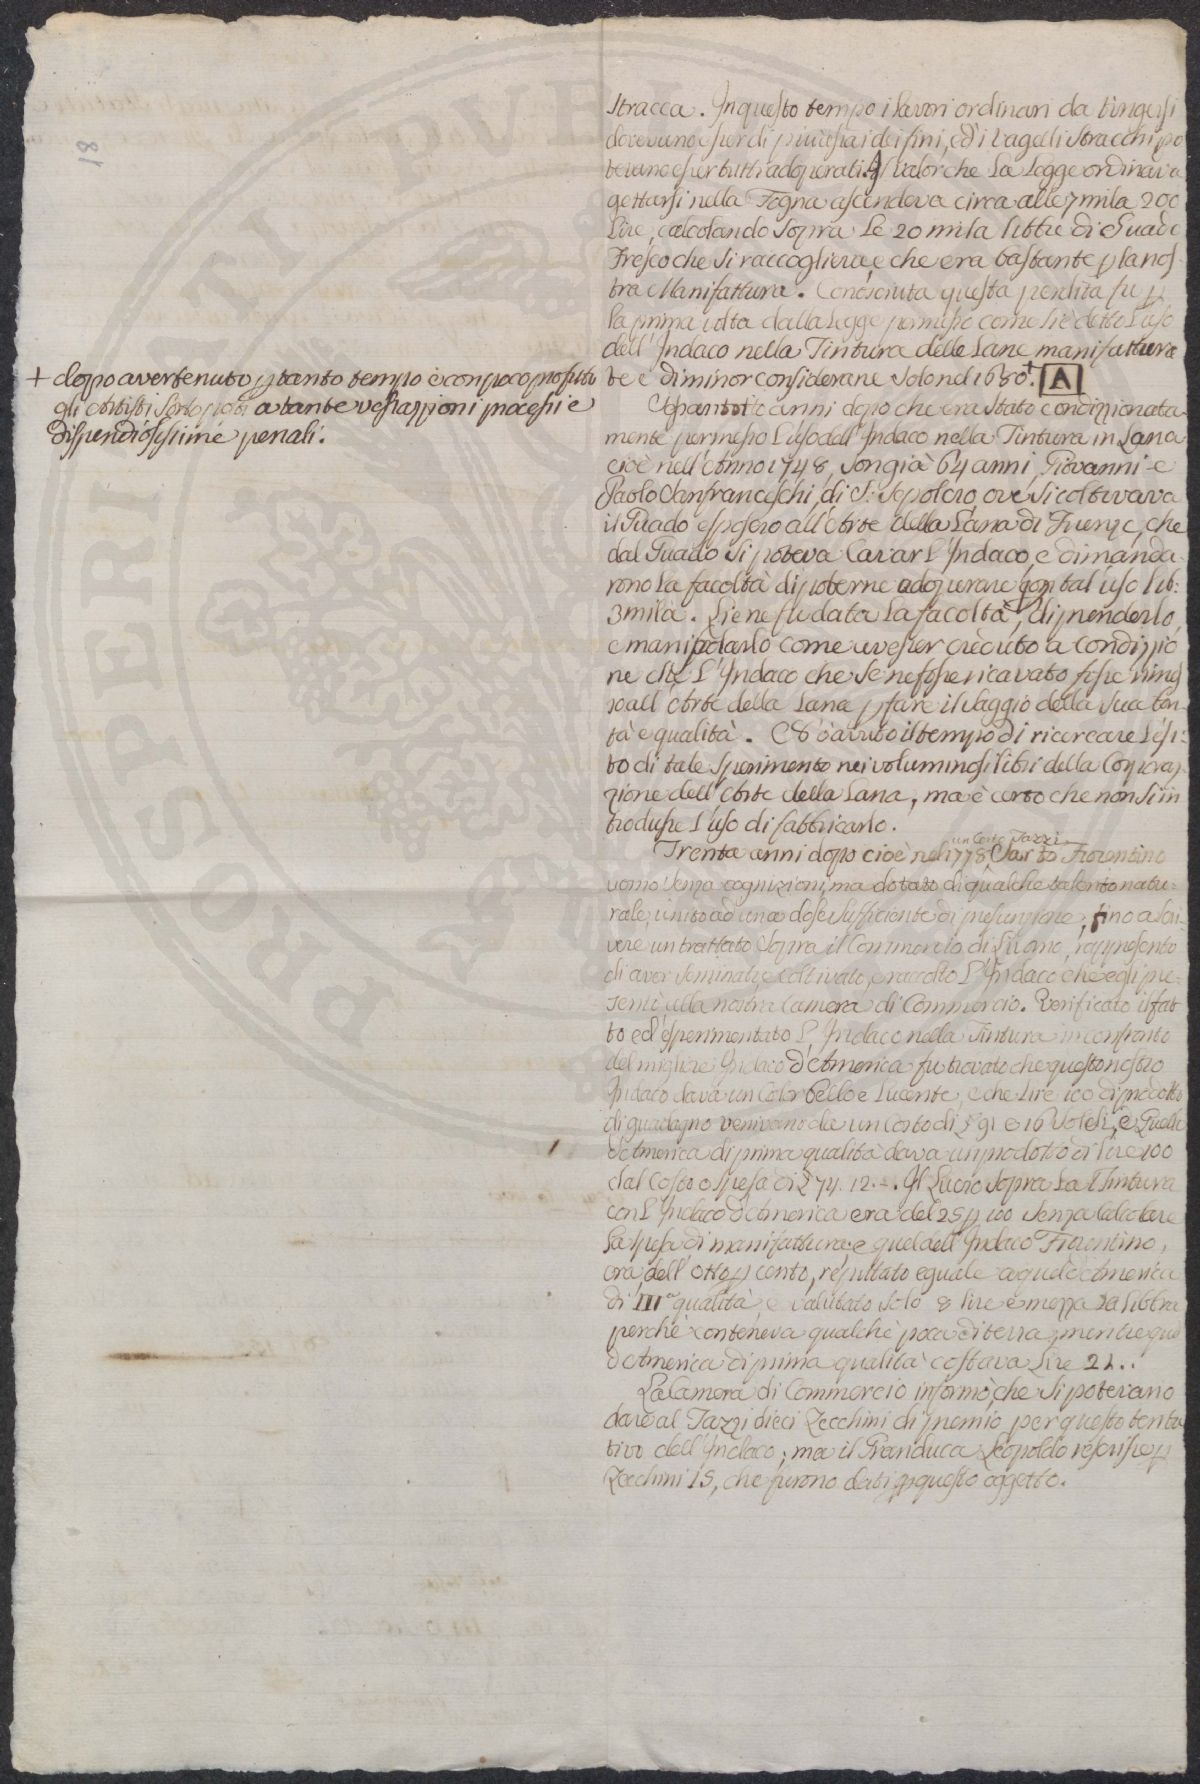 81
+ dopo aver tenuto p tanto tempo e con poco profitto
gli Artisti sottoposti a tante vessazzioni processi e
dispendiosissime penali.
stracca. In questo tempo i lavori ordinari da tingersi
dovevano esser di più assai dei fini, ed i vagelli stracchi po
tevano esser tutti adoperati. Il valor che la Legge ordinava
gettarsi nella Fogna ascendeva circa alle 7 mila 200
Lire, calcolando sopra le 20 mila libbre di Guado
Fresco che si raccoglieva, e che era bastante p la nos-
tra Manifattura. Conosciuta questa perdita fu p
la prima volta dalla Legge permesso come si è detto l'uso
dell'Indaco nella Tintura delle Lane manifattura
te e di minor considerazne solo nel 1650. + A
anni dopo che era stato condizzionata-
mente permesso l'uso dell'Indaco nella Tintura in Lana
cioè nell'Anno 1748, son già 64 anni, Giovanni e
Paolo Sanfranceschi, di S. Sepolcro, ove si coltivava
il Guado esposero all'Arte della Lana di Firenze, che
dal Guado si poteva Cavar l'Indaco, e dimanda-
rono la facoltà di poterne adoperare con tal uso lib:
3 mila. Gliene fu data la facoltà, di prenderlo,
e manipolarlo come avesser creduto a condizzio
ne che l'Indaco che se ne fosse ricavato fosse rimes
so all'Arte della Lana p fare il saggio della sua bon-
tà e qualità. Non ò avuto il tempo di ricercare l'esi-
to di tale sperimento nei voluminosi libri della Coporaz-
zione dell'Arte della Lana, ma è certo che non si in
trodusse l'uso di fabbricarlo.
un Certo Tazzi
Trenta anni dopo cioè nel 1778 Fiorentino
uomo senza cognizioni, ma dotato di qualche talento natu-
rale, unito ad una dose sufficiente di presunzione, fino a scri-
vere un trattato sopra il Commercio di Livorno, rappresentò
di aver seminato, e coltivato, e raccolto l'Indaco che egli pre-
sentò alla nostra Camera di Commercio. Verificato il fat-
to ed esperimentato l'Indaco nella Tintura in confronto
del migliore Indaco d'America fu trovato che questo nostro
Indaco dava un Color bello e lucente, e che Lire 100 di prodotto
di guadagno venivano da un Costo di £ 91 e 16 soldi, e Quello
d'America di prima qualità dava un prodotto di Lire 100
dal Costo o spesa di £ 74. 12.-. Il Lucro sopra la Tintura
con l'Indaco d'America era del 25 p 100 senza calcolare
la spesa di manifattura, e quel dell'Indaco Fiorentino,
era dell'otto p cento, reputato eguale a quel d'America
di IIIa qualità, e valutato solo 8 lire e mezza la libbra
perchè conteneva qualche poca di terra, mentre quel
d'America di prima qualità costava Lire 21..
La Camera di Commercio informò, che si potevano
dare al Tazzi dieci Zecchini di premio per questo tenta
tivo dell'Indaco; ma il Granduca Leopoldo rescrisse p
Zecchini 15, che furono dati p questo oggetto.